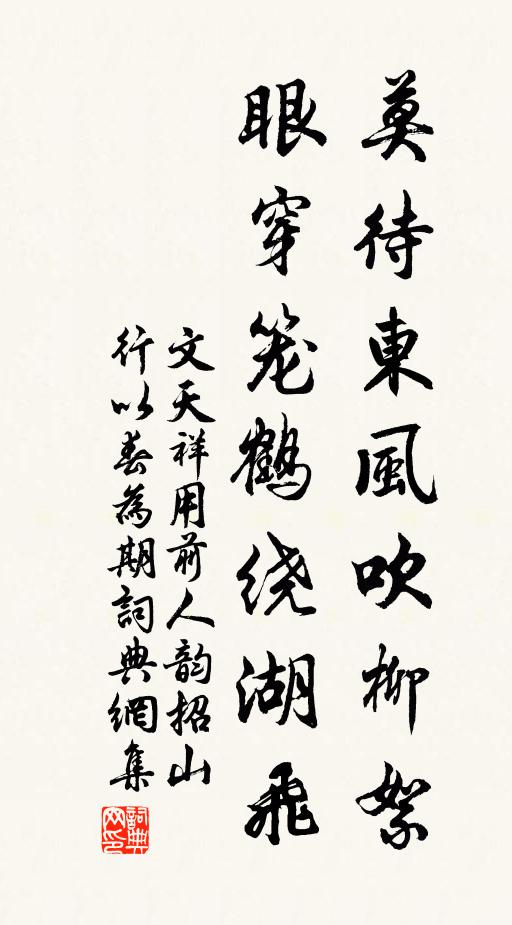 莫待東風吹柳絮
眼穿笼鶴绕湖飛
文天祥用前人韵招山
行以春為期詞典網集
詞典网印